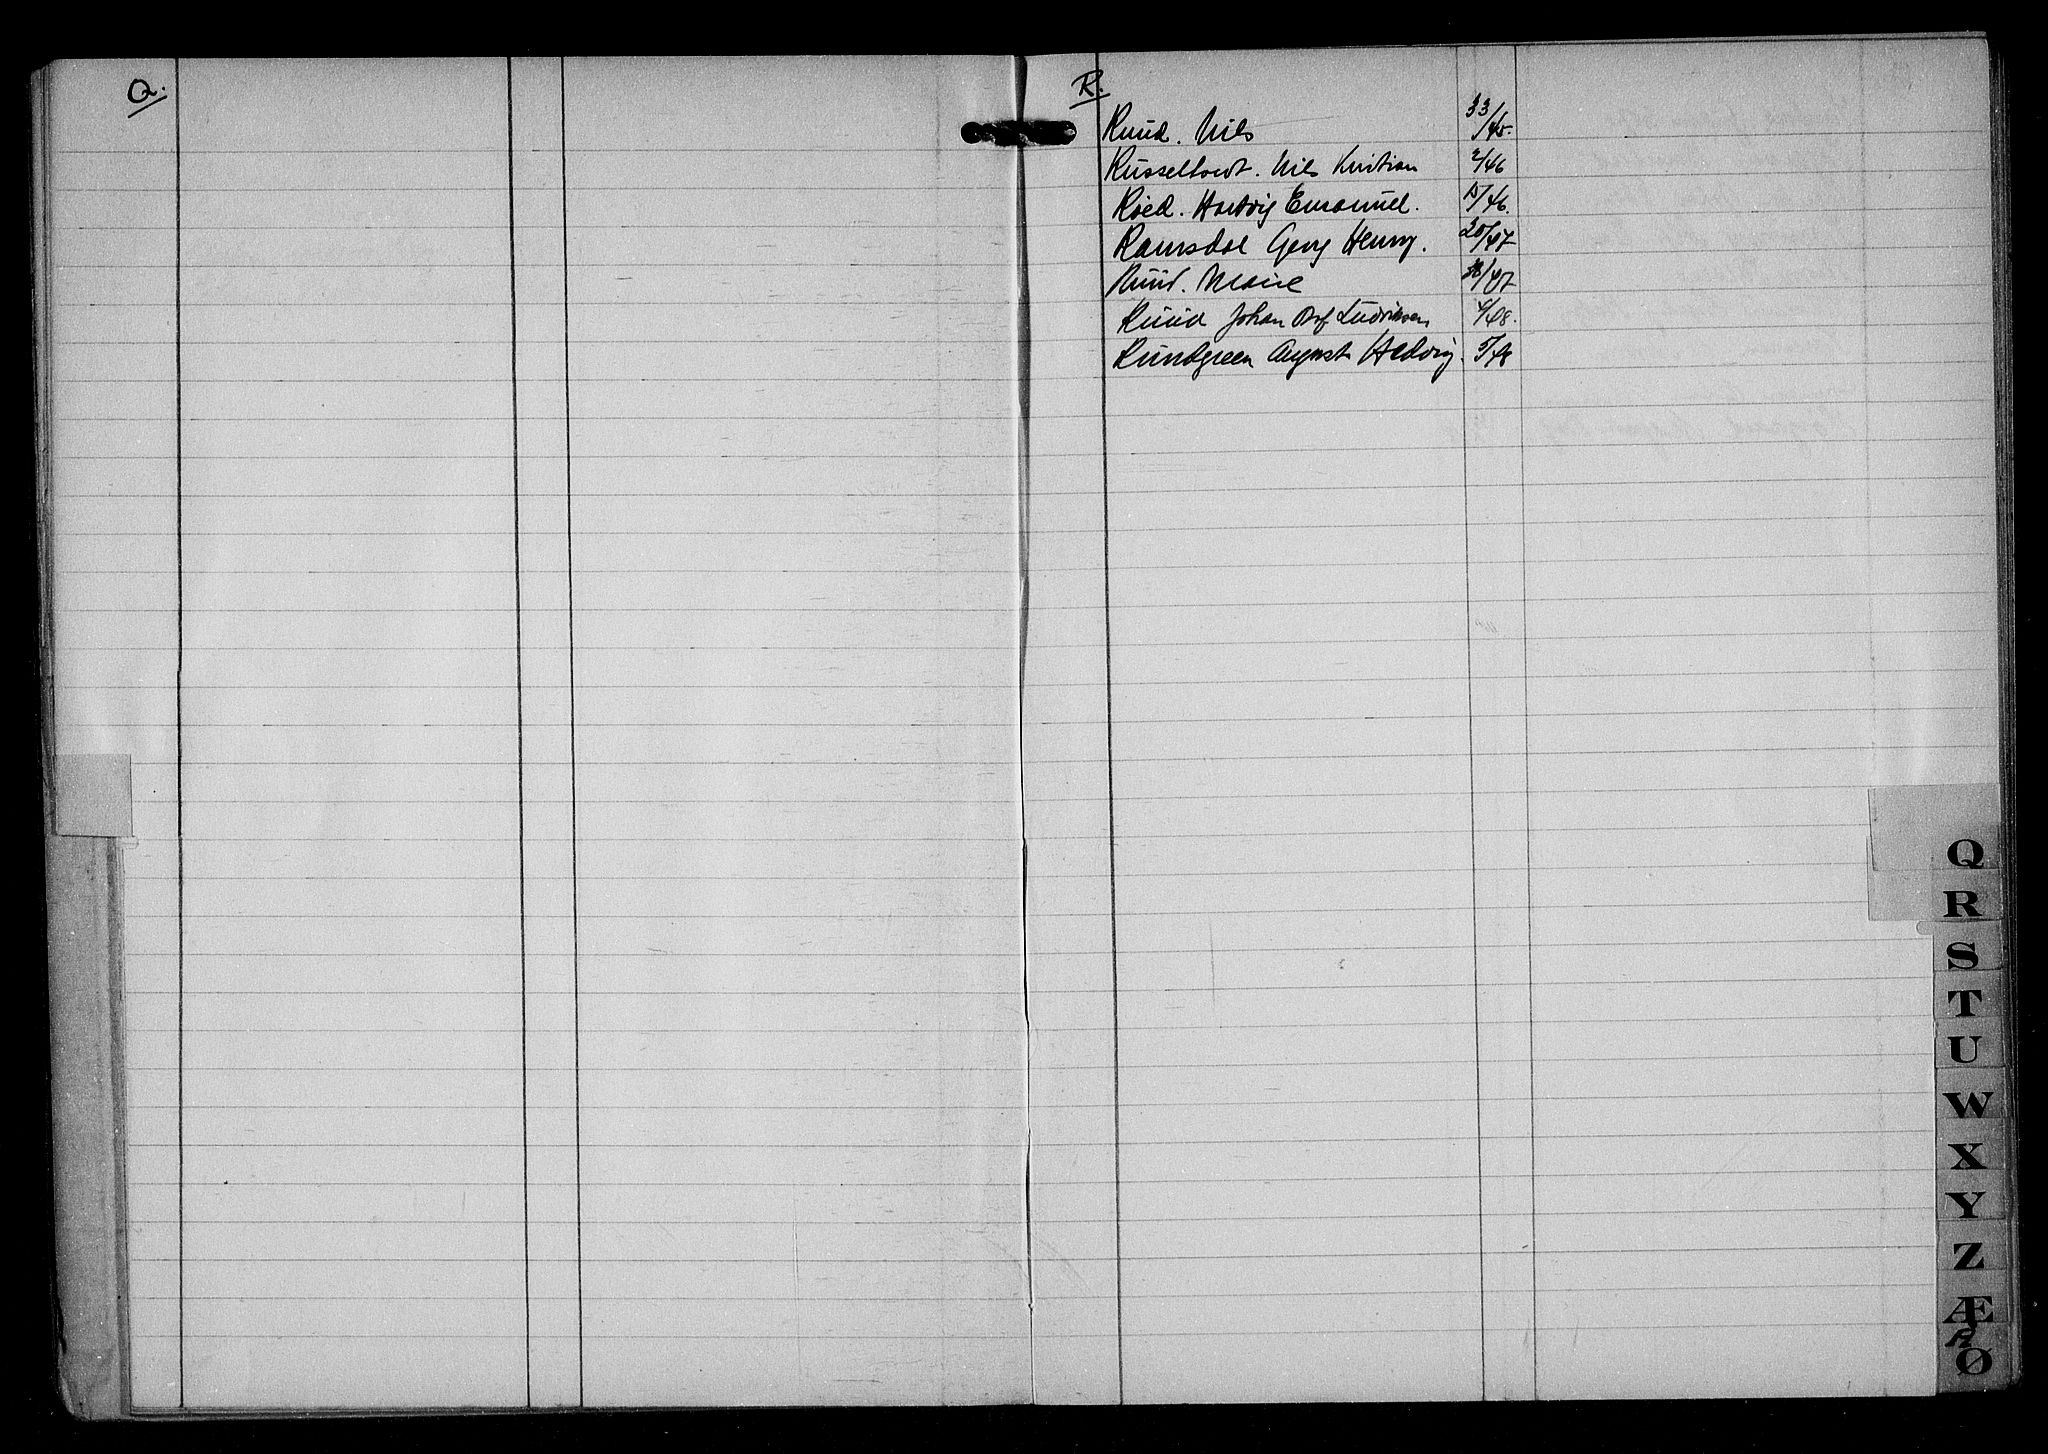 Q.
R.
Ruud. Nils 33/45.
Russeltvedt. Nils Kristian 2/46
Røed. Hartvig Emanuel. 15/46.
Ramsdal Georg Henry. 20/47
Ruud. Marie /47
Ruud Johan Ludviksen 4/48.
Rundgreen August Hedvig. 5/48
Q
R
S
T
U
W
X
Y
Z
Æ
Ø